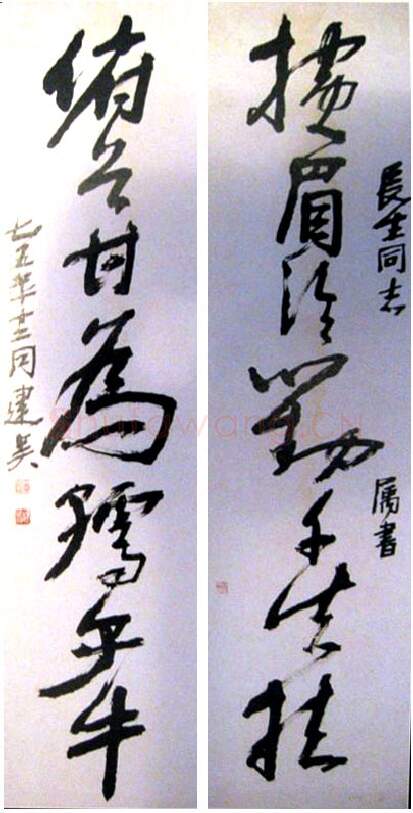 長生同志 属書
横眉冷對千夫指
俯首甘為孺子牛
七五年十二月建吴
ShufaWang.CN